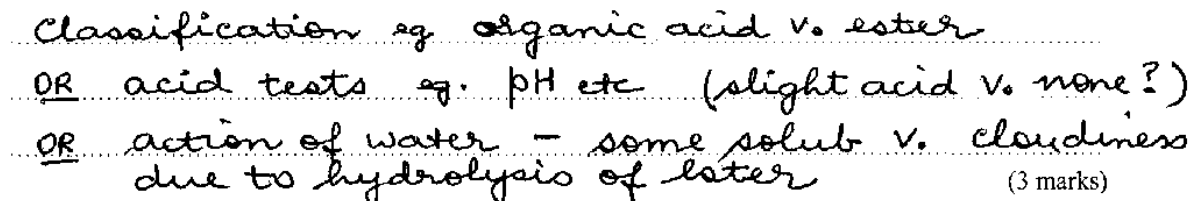 Classification eg organic acid v. ester
OR acid tests eg. pH etc (slight acid v. none?)
OR action of water - some solub v. cloudiness
due to hydrolysis of later (3 marks)